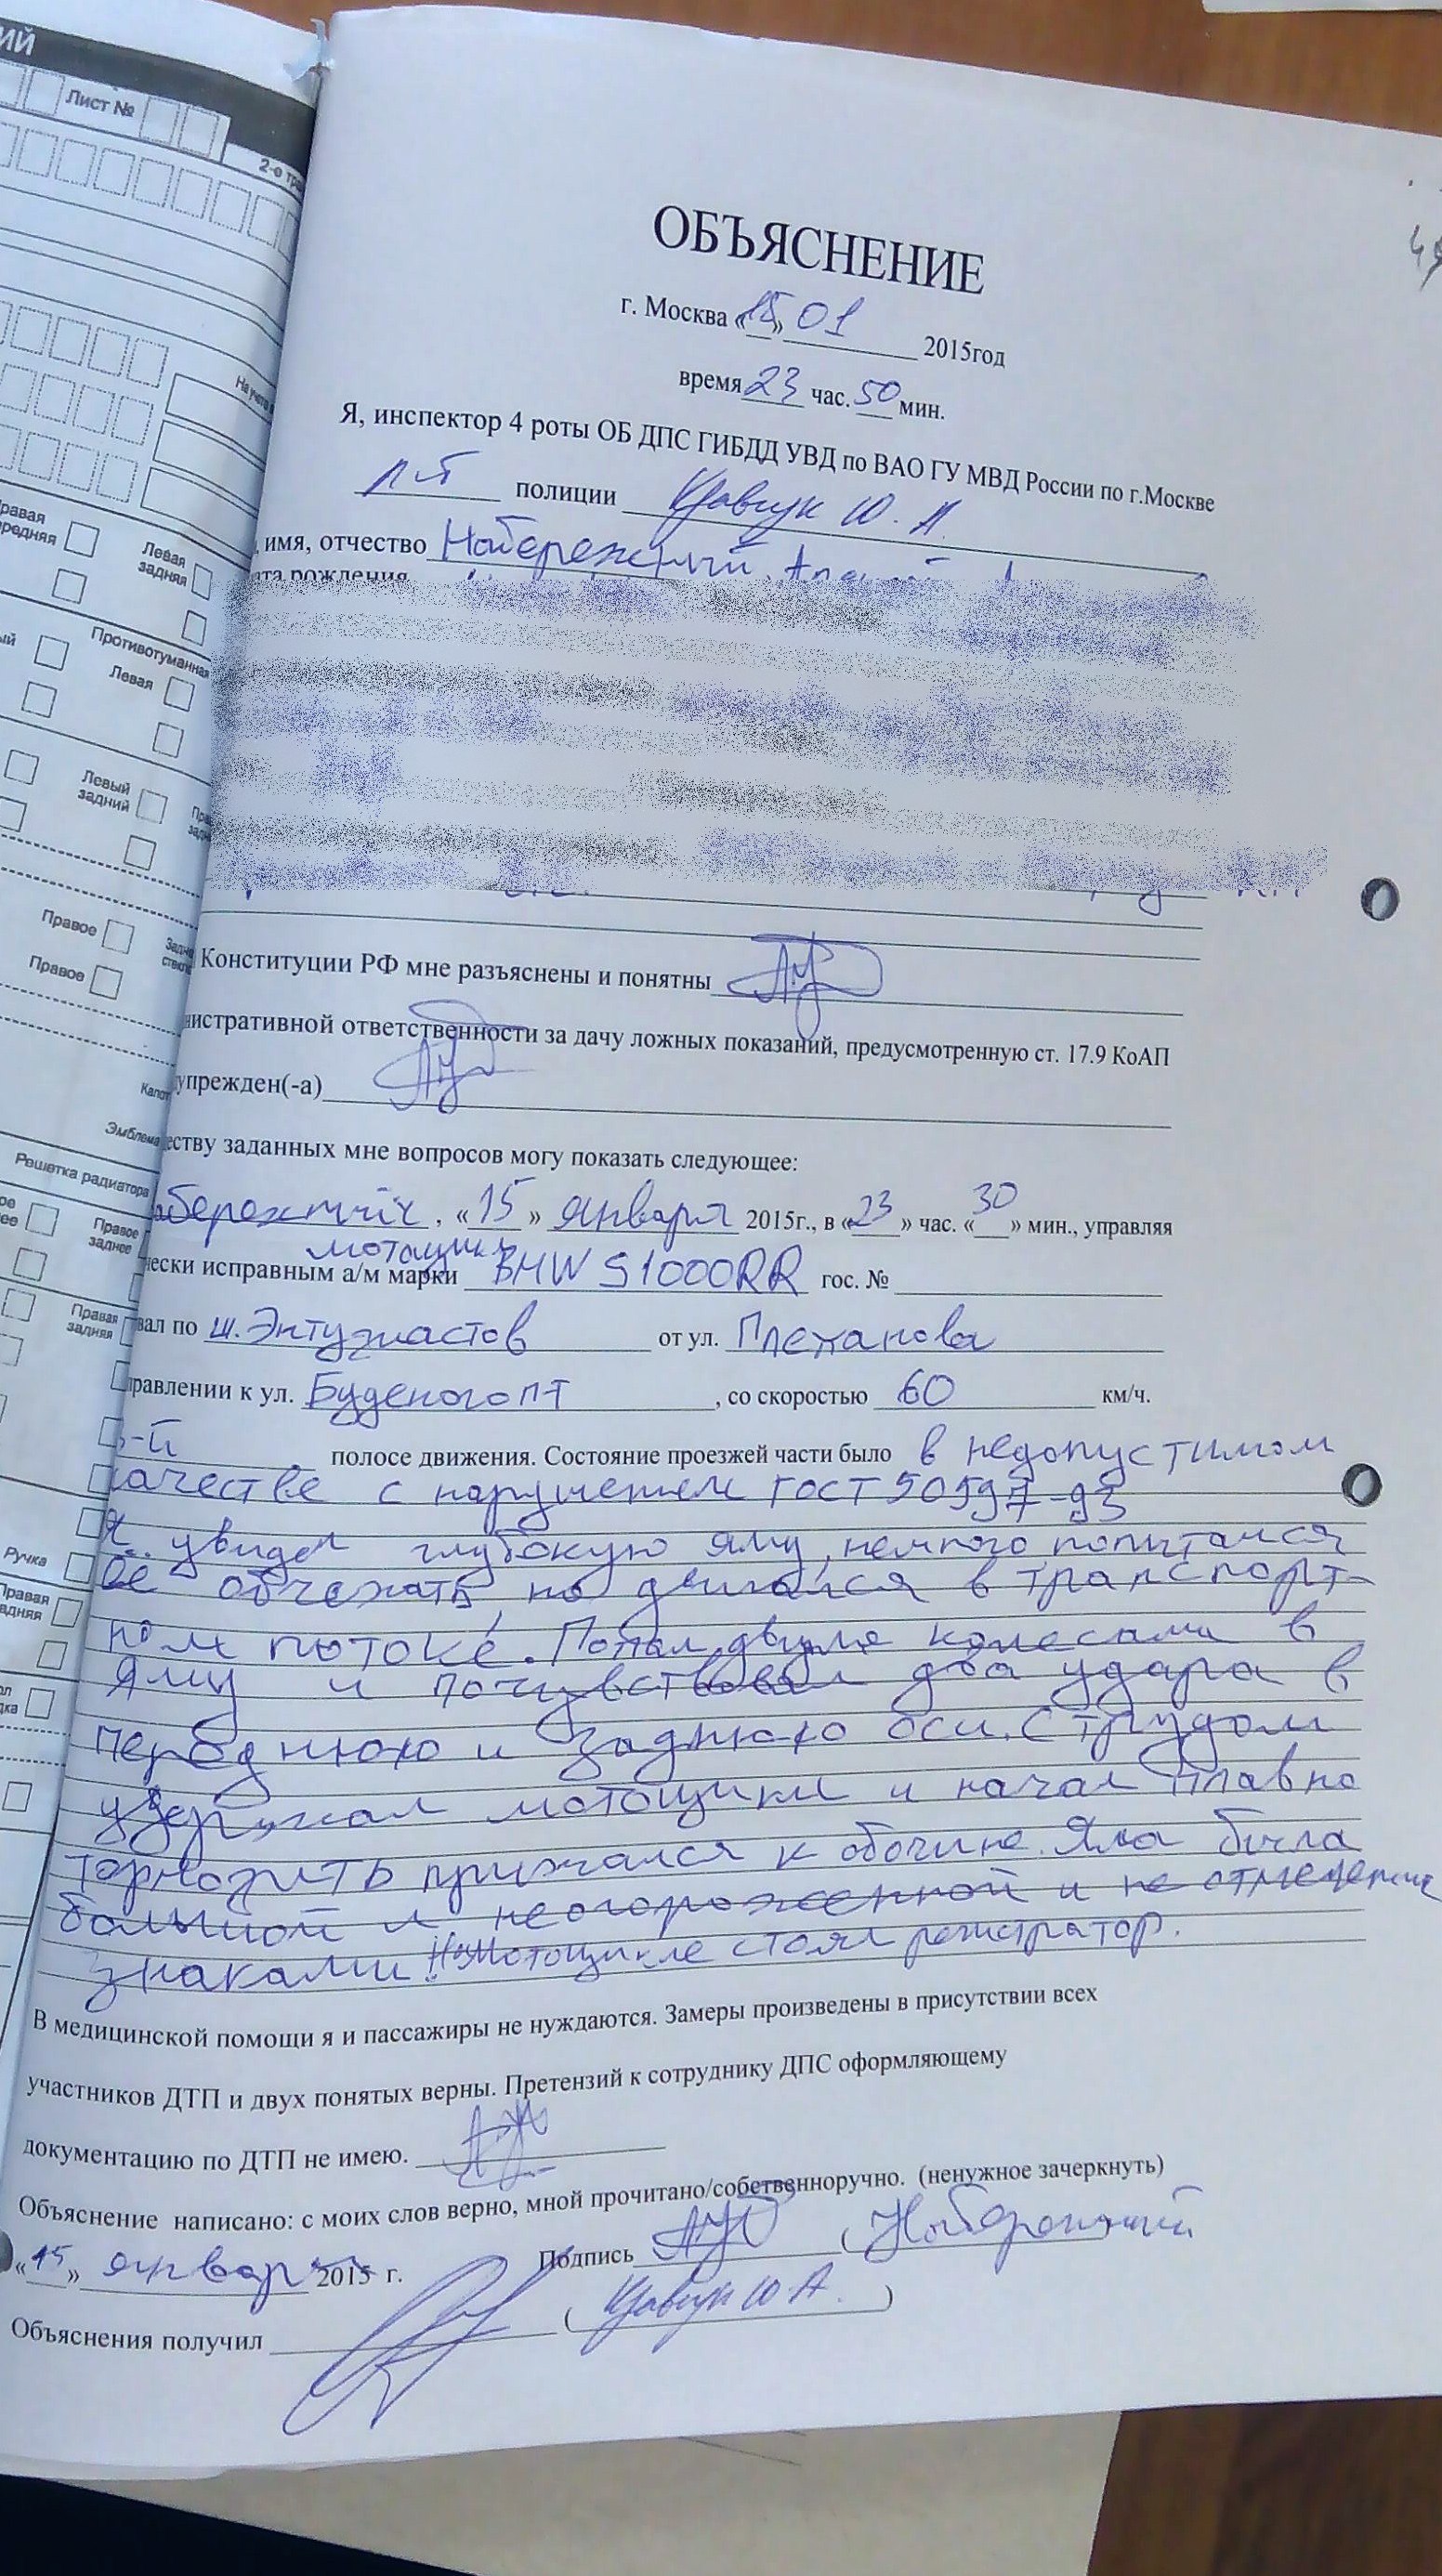 ИЙ
Лист №
2-о тра
На учете в
правая
передняя
Левая
задняя
Противотуманная
Левая
Левый
задний
Правое
Правое
Задне
стекло
Капот
Эмблема
Решетка радиатора
Правое
заднее
Правая
задняя
Ручка
Правая
задняя
ОБЪЯСНЕНИЕ
г. Москва «15» 01 2015год
время 23 час. 50 мин.
Я, инспектор 4 роты ОБ ДПС ГИБДД УВД по ВАО ГУ МВД России по г.Москве
л-т полиции Кравчук Ю. А.
, имя, отчество Набережный
ата рождения
Конституции РФ мне разъяснены и понятны
нистративной ответственности за дачу ложных показаний, предусмотренную ст. 17.9 КоАП
упрежден(-а)
еству заданных мне вопросов могу показать следующее:
абережный, «15» января 2015г., в «23» час. «30» мин., управляя
мотоцикл
чески исправным а/м марки BMW S1000RR гос. №
вал по ш. Энтузиастов от ул. Плеханова
правлении к ул. Буденого пт, со скоростью 60 км/ч.
-й полосе движения. Состояние проезжей части было в недопустимом
качестве с нарушением ГОСТ 50597-93
Я увидел глубокую яму, немного попытался
ее объежать, но двигался в транспорт-
ном потоке. Попал двумя колесами в
яму и почувствовал два удара в
переднюю и заднюю оси. С трудом
удержал мотоцикл и начал плавно
тормозить прижался к обочине. Яма была
большой и неогороженной и не отмеченна
знаками!! На мотоцикле стоял регистратор.
В медицинской помощи я и пассажиры не нуждаются. Замеры произведены в присутствии всех
участников ДТП и двух понятых верны. Претензий к сотруднику ДПС оформляющему
документацию по ДТП не имею.
Объяснение написано: с моих слов верно, мной прочитано/собственноручно. (ненужное зачеркнуть)
«15» января 2015 г. Подпись (Набережный
Объяснения получил (Кравчук Ю А.)